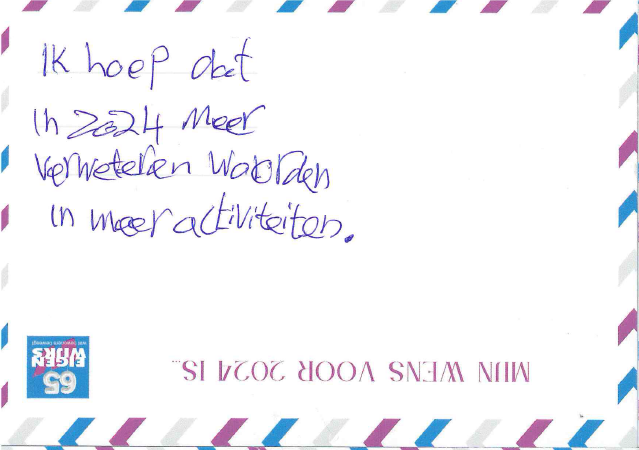 Ik hoep dat
in 2024 meer
verweteren woorden
in meer activiteiten.
MIJN WENS VOOR 2024 IS...
65
EIGEN
WIJRS